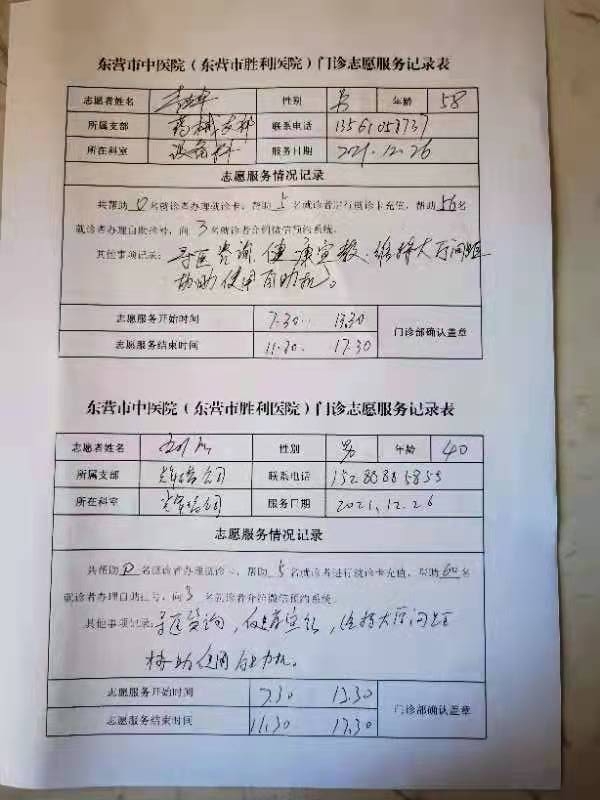 东营市中医院（东营市胜利医院）门诊志愿服务记录表
志愿者姓名 性别 男 年龄 58
所属支部 药械支部 联系电话 13561058737
所在科室 设备科 服务日期 2021.12.26
志愿服务情况记录
共帮助 0 名就诊者办理就诊卡，帮助 5 名就诊者进行就诊卡充值，帮助 56 名
就诊者办理自助挂号，向 3 名就诊者介绍微信预约系统。
其他事项记录：导医咨询、健康宣教、维持大厅问题
协助使用自助机。
志愿服务开始时间 7.30 13.30
门诊部确认盖章
志愿服务结束时间 11.30 17.30
东营市中医院（东营市胜利医院）门诊志愿服务记录表
志愿者姓名 性别 男 年龄 40
所属支部 公司 联系电话
所在科室 公司 服务日期 2021.12.26
志愿服务情况记录
共帮助 0 名就诊者办理就诊卡，帮助 5 名就诊者进行就诊卡充值，帮助 60 名
就诊者办理自助挂号，向 3 名就诊者介绍微信预约系统。
其他事项记录：导医咨询，健康宣教，维持大厅问题
协助使用自助机。
志愿服务开始时间 7.30 13.30
门诊部确认盖章
志愿服务结束时间 11.30 17.30